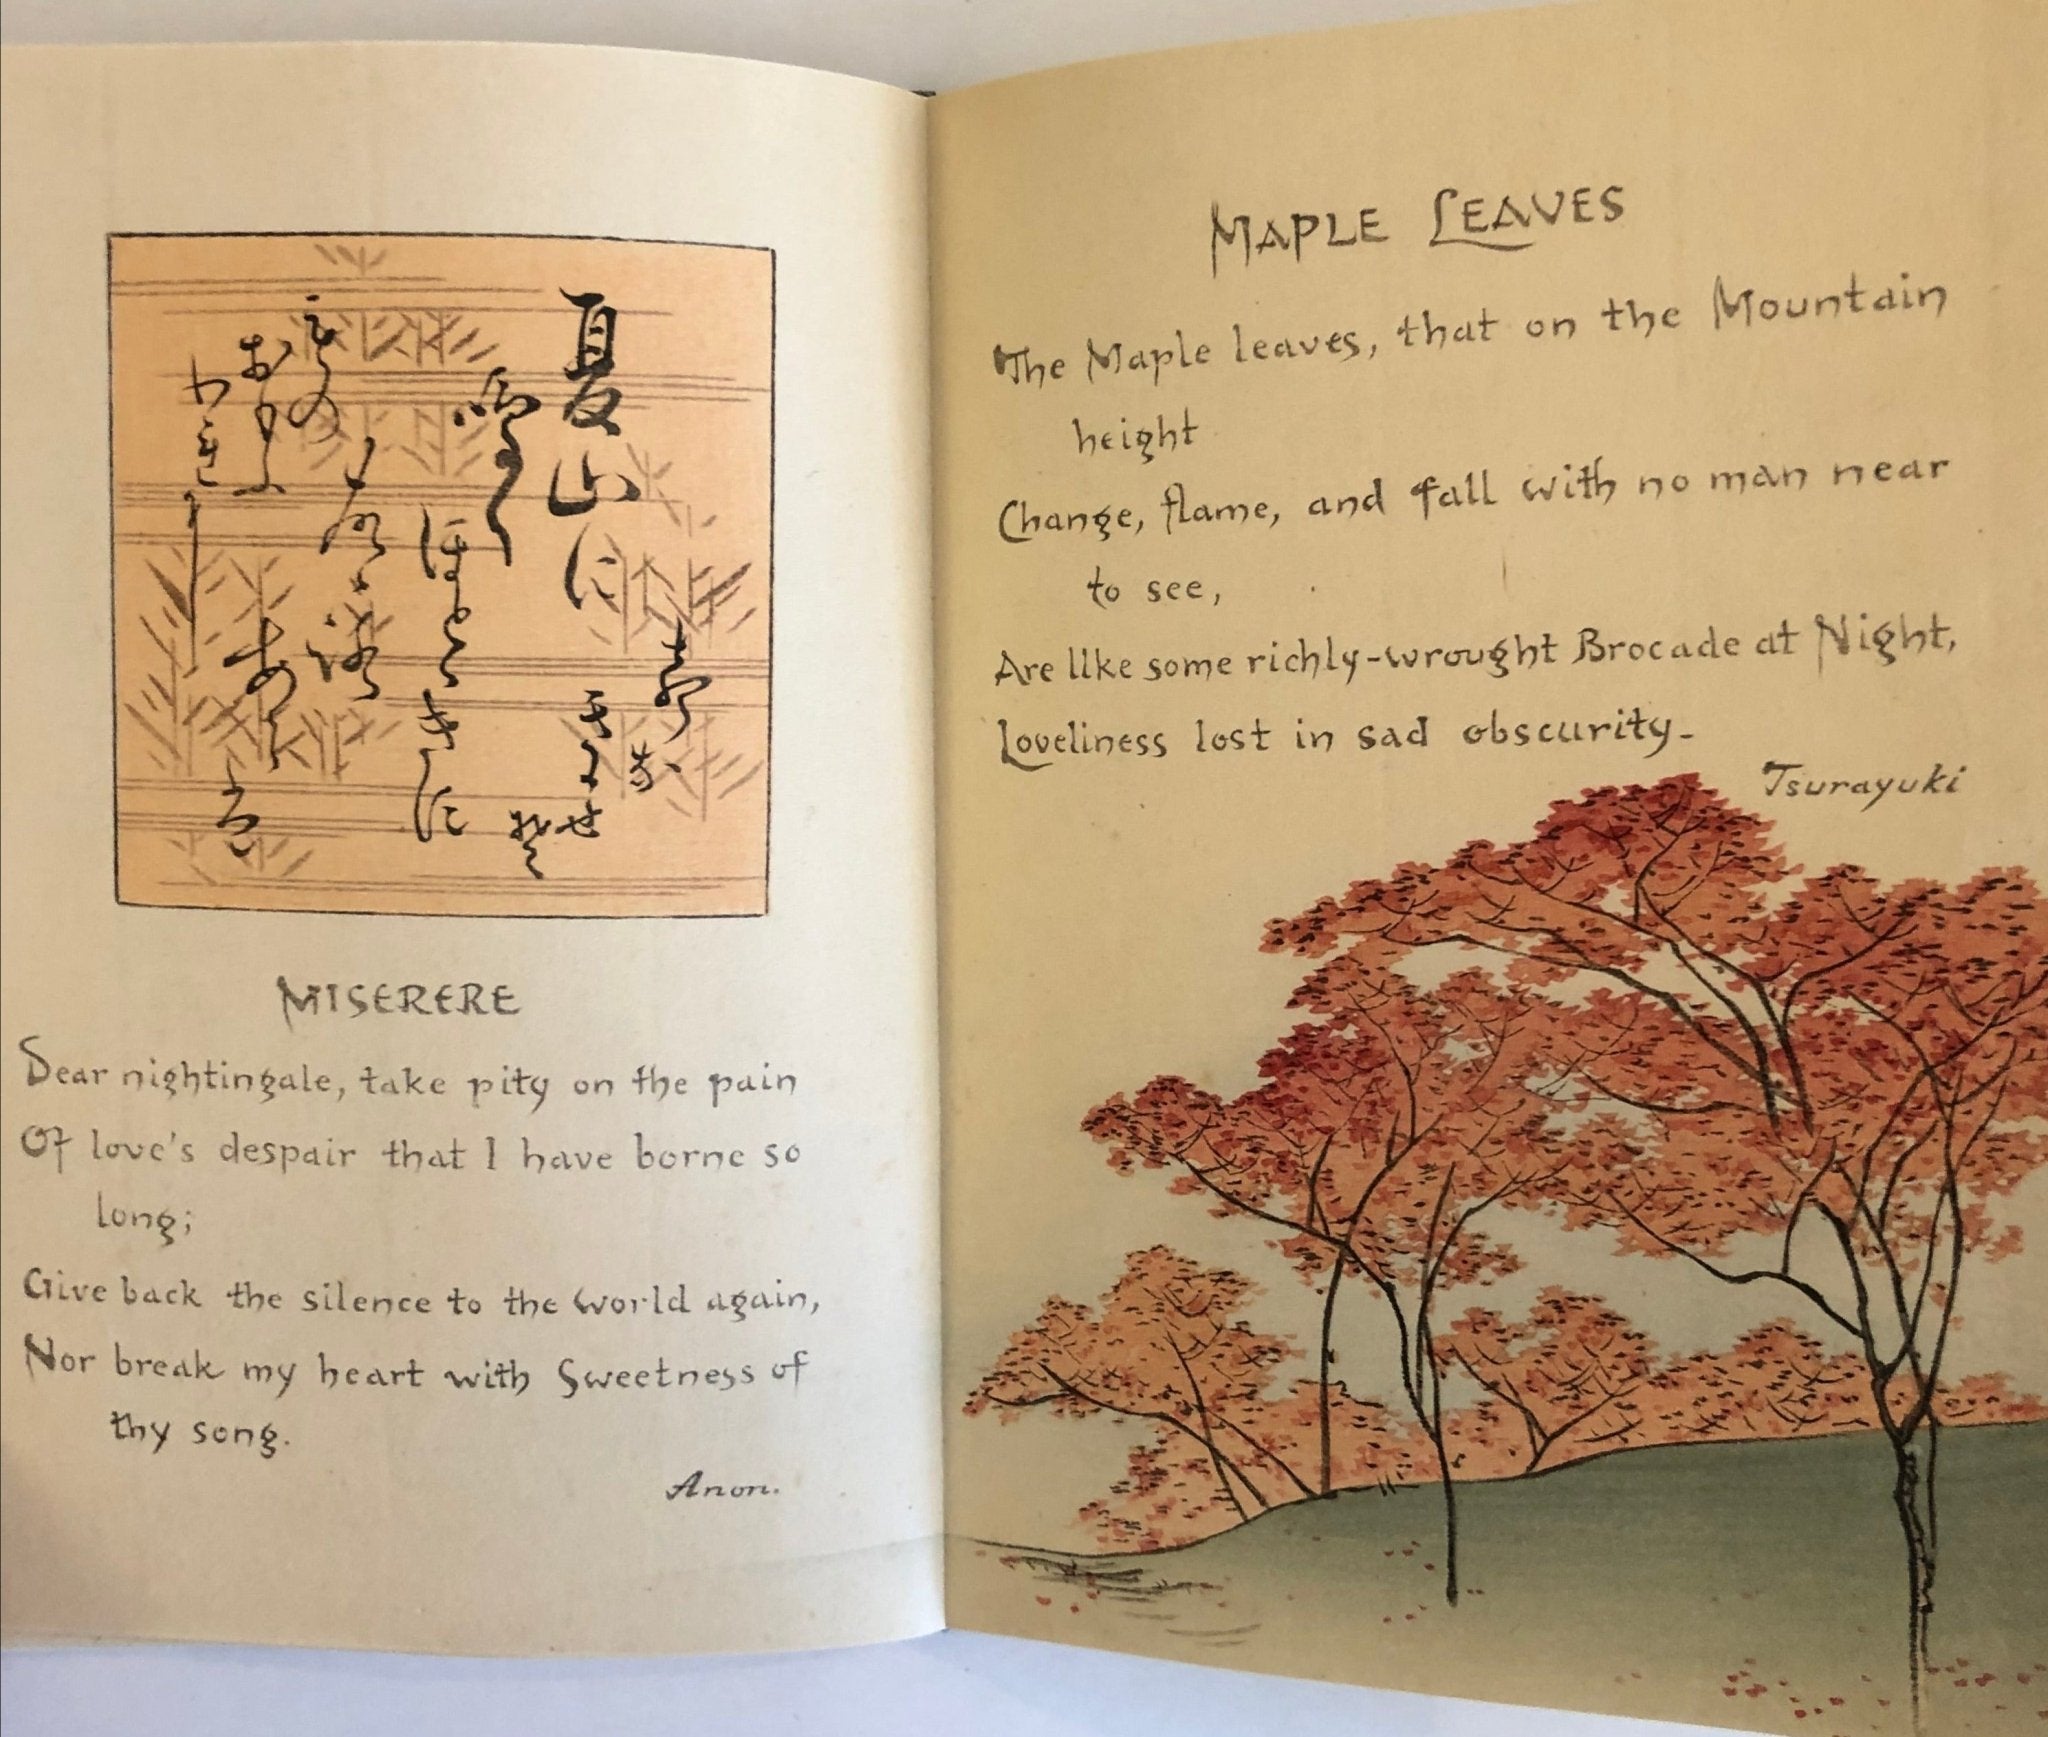 夏山に
鳴く
ほとゝきす
もの
おもふ
われに
きかせ
MISERERE
Dear nightingale, take pity on the pain
Of love's despair that I have borne so
long;
Give back the silence to the world again,
Nor break my heart with Sweetness of
thy song.
Anon.
MAPLE LEAVES
The Maple leaves, that on the Mountain
height
Change, flame, and fall with no man near
to see,
Are like some richly-wrought Brocade at Night,
Loveliness lost in sad obscurity.
Tsurayuki